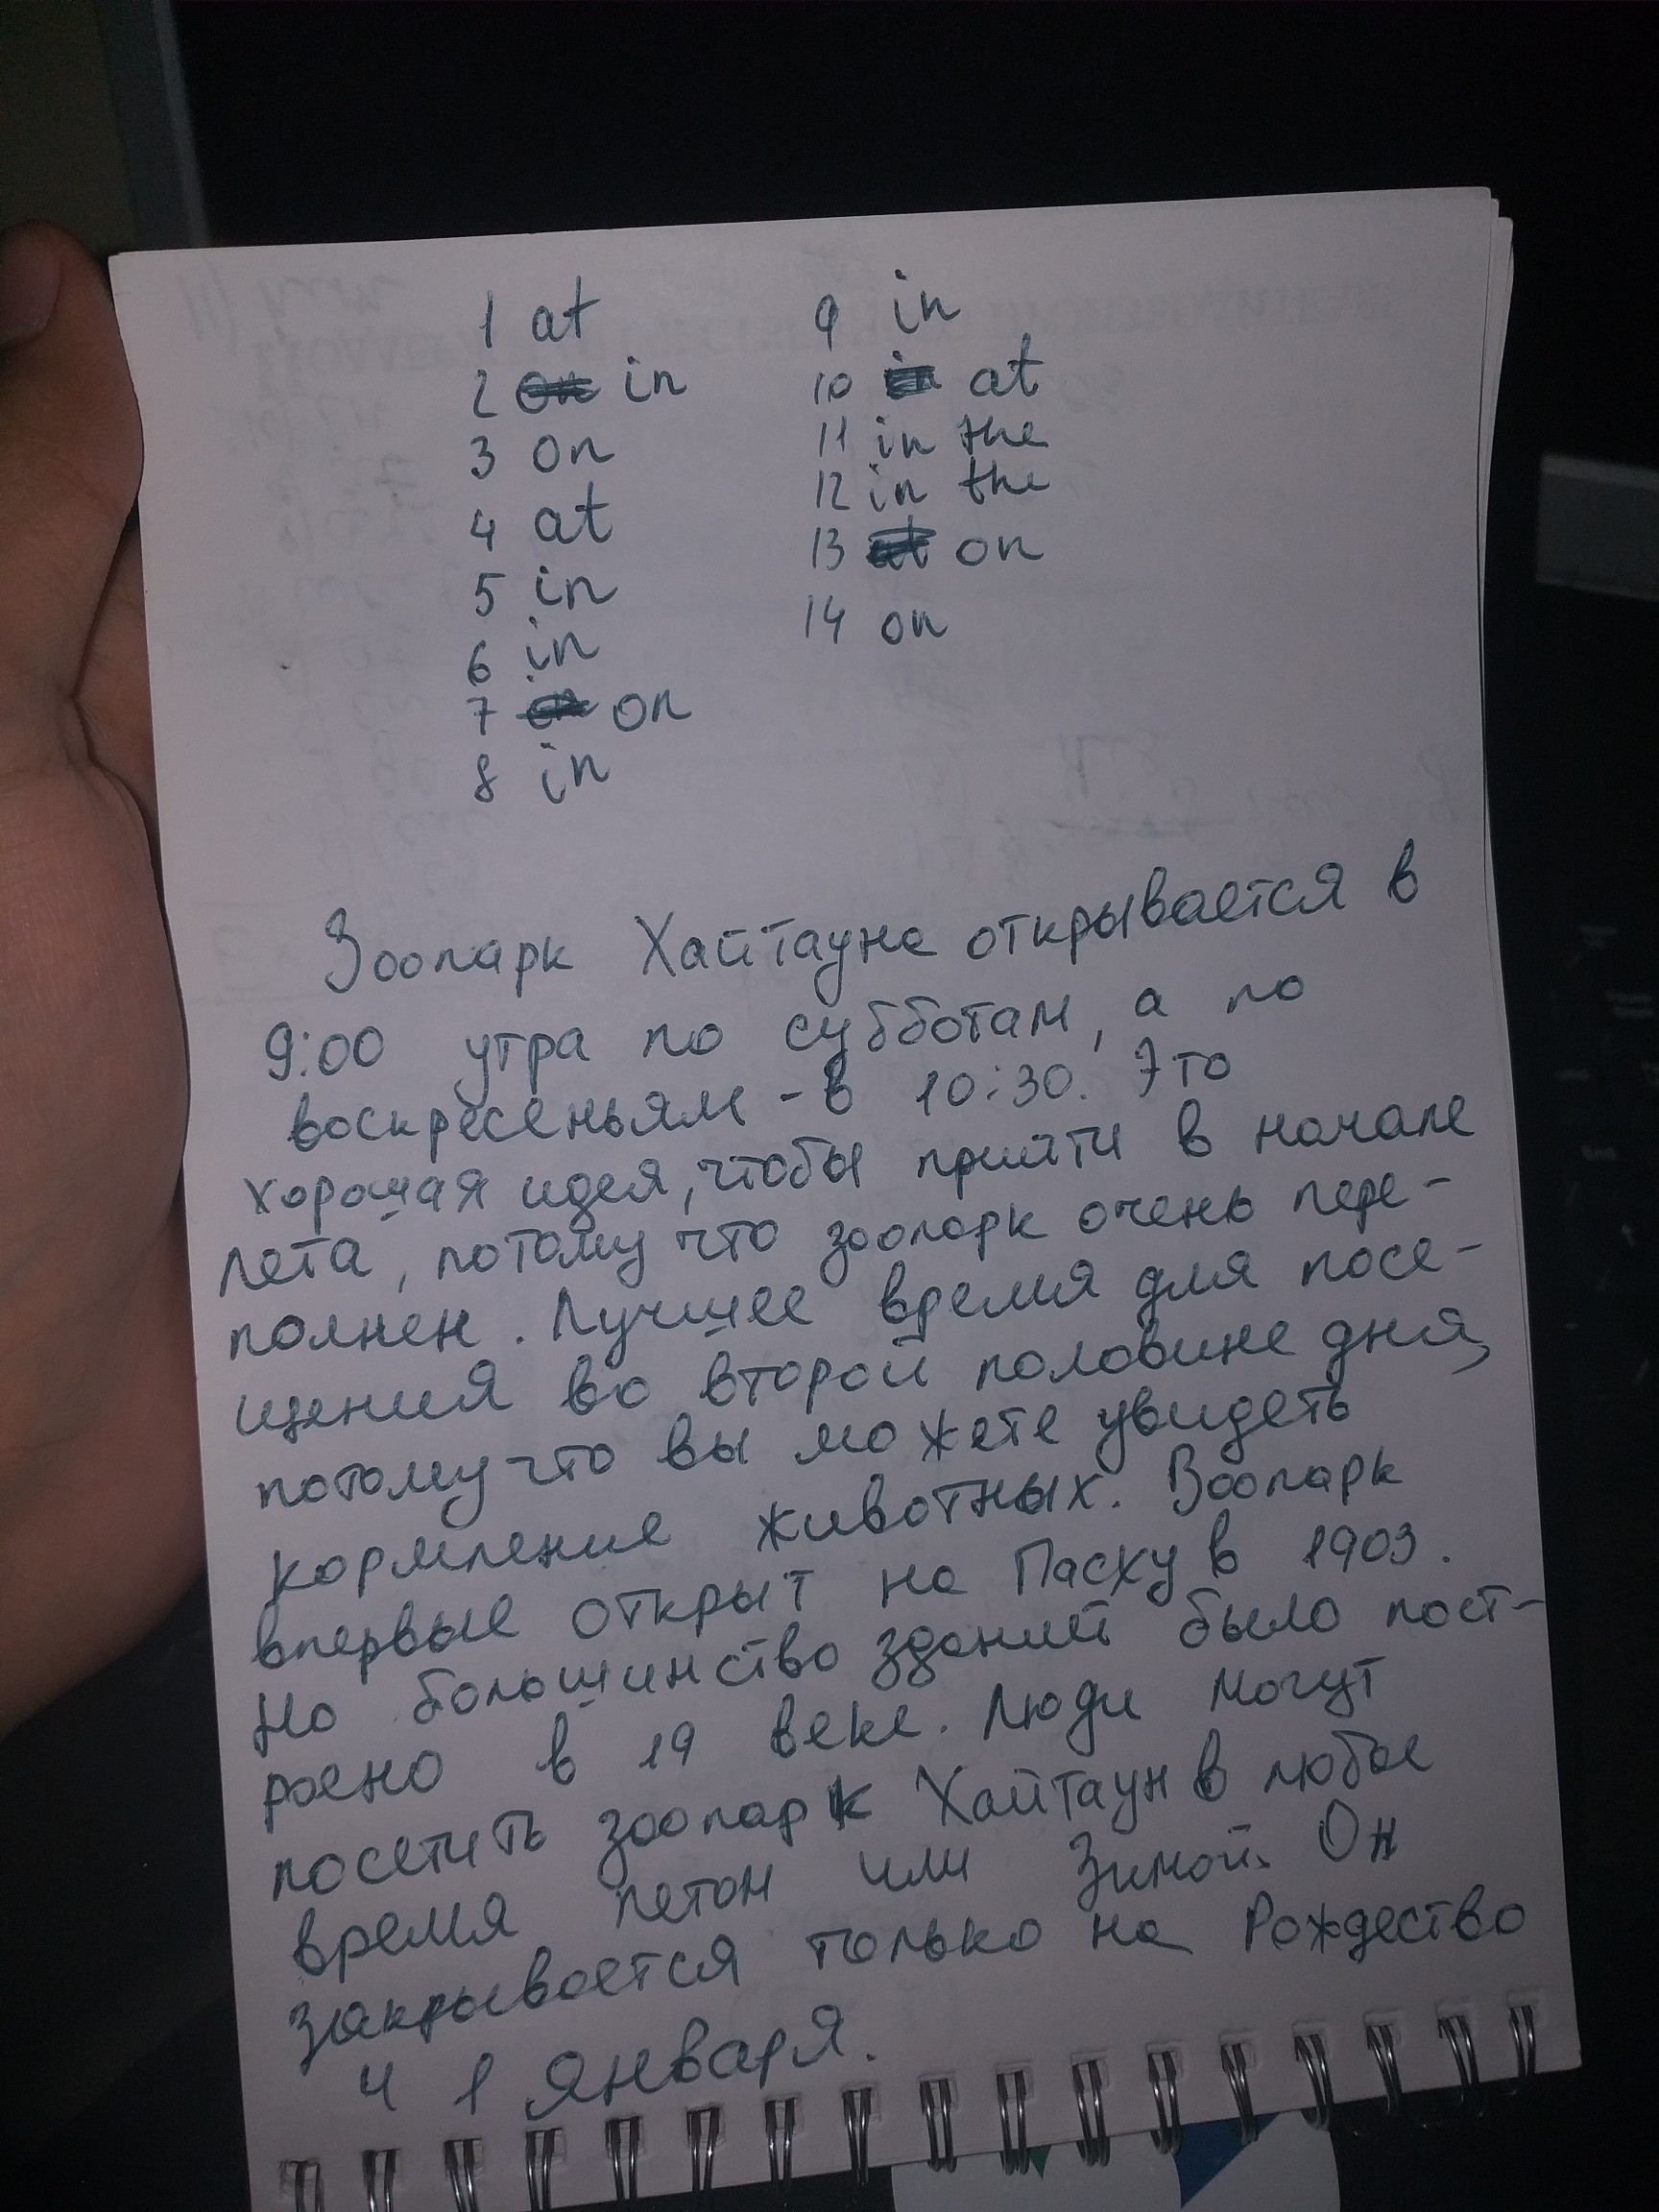 1 at
2 in
3 on
4 at
5 in
6 in
7 on
8 in
9 in
10 at
11 in the
12 in the
13 on
14 on
Зоопарк Хайтауна открывается в
9:00 утра по субботам, а по
воскресеньям - в 10:30. Это
хорошая идея, чтобы прийти в начале
лета, потому что зоопарк очень пере-
полнен. Лучшее время для посе-
щения во второй половине дня,
потому что вы можете увидеть
кормление животных. Зоопарк
впервые открыт на Пасху в 1903.
Но большинство зданий было пост-
роено в 19 веке. Люди могут
посетить зоопарк Хайтаун в любое
время летом или зимой. Он
закрывается только на Рождество
и 1 января.